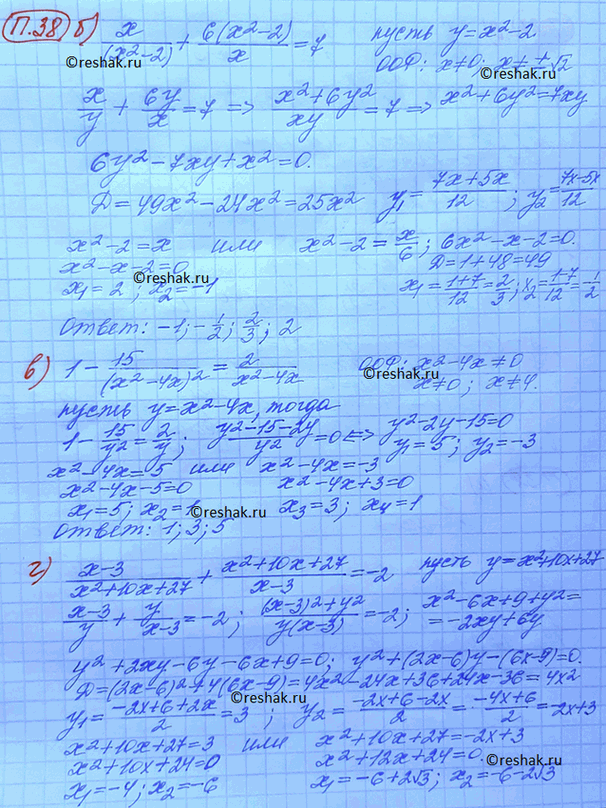 П.38 б) x/(x²-2) + 6(x²-2)/x = 7   пусть y = x²-2
ООФ: x≠0; x≠±√2
©reshak.ru
x/y + 6y/x = 7 => (x²+6y²)/xy = 7 => x²+6y²=7xy
6y²-7xy+x²=0.
Д=49x²-24x²=25x²   y₁=(7x+5x)/12; y₂=(7x-5x)/12
x²-2=x   или   x²-2=x/6; 6x²-x-2=0.
x²-x-2=0   Д=1+48=49
©reshak.ru
x₁=2; x₂=-1   x₁=(1+7)/12=2/3; x₂=(1-7)/12=-1/2
Ответ: -1; -1/2; 2/3; 2
в) 1 - 15/(x²-4x)² = 2/(x²-4x)   ООФ: x²-4x≠0
©reshak.ru
x≠0; x≠4.
пусть y=x²-4x, тогда
1 - 15/y² = 2/y; (y²-15-2y)/y² = 0 <=> y²-2y-15=0
y₁=5; y₂=-3
x²-4x=5 или x²-4x=-3
x²-4x-5=0   x²-4x+3=0
x₁=5; x₂=1   x₃=3; x₄=1
©reshak.ru
Ответ: 1; 3; 5
г) (x-3)/(x²+10x+27) + (x²+10x+27)/(x-3) = -2   пусть y=x²+10x+27
(x-3)/y + y/(x-3) = -2; ((x-3)²+y²)/y(x-3) = -2; x²-6x+9+y²=
=-2xy+6y
©reshak.ru
y²+2xy-6y-6x+9=0; y²+(2x-6)y-(6x-9)=0.
Д=(2x-6)²+4(6x-9)=4x²-24x+36+24x-36=4x²
©reshak.ru
y₁=(-2x+6+2x)/2=3; y₂=(-2x+6-2x)/2=(-4x+6)/2=-2x+3
x²+10x+27=3   или   x²+10x+27=-2x+3
x²+10x+24=0   x²+12x+24=0
©reshak.ru
x₁=-4; x₂=-6   x₁=-6+2√3; x₂=-6-2√3
©reshak.ru